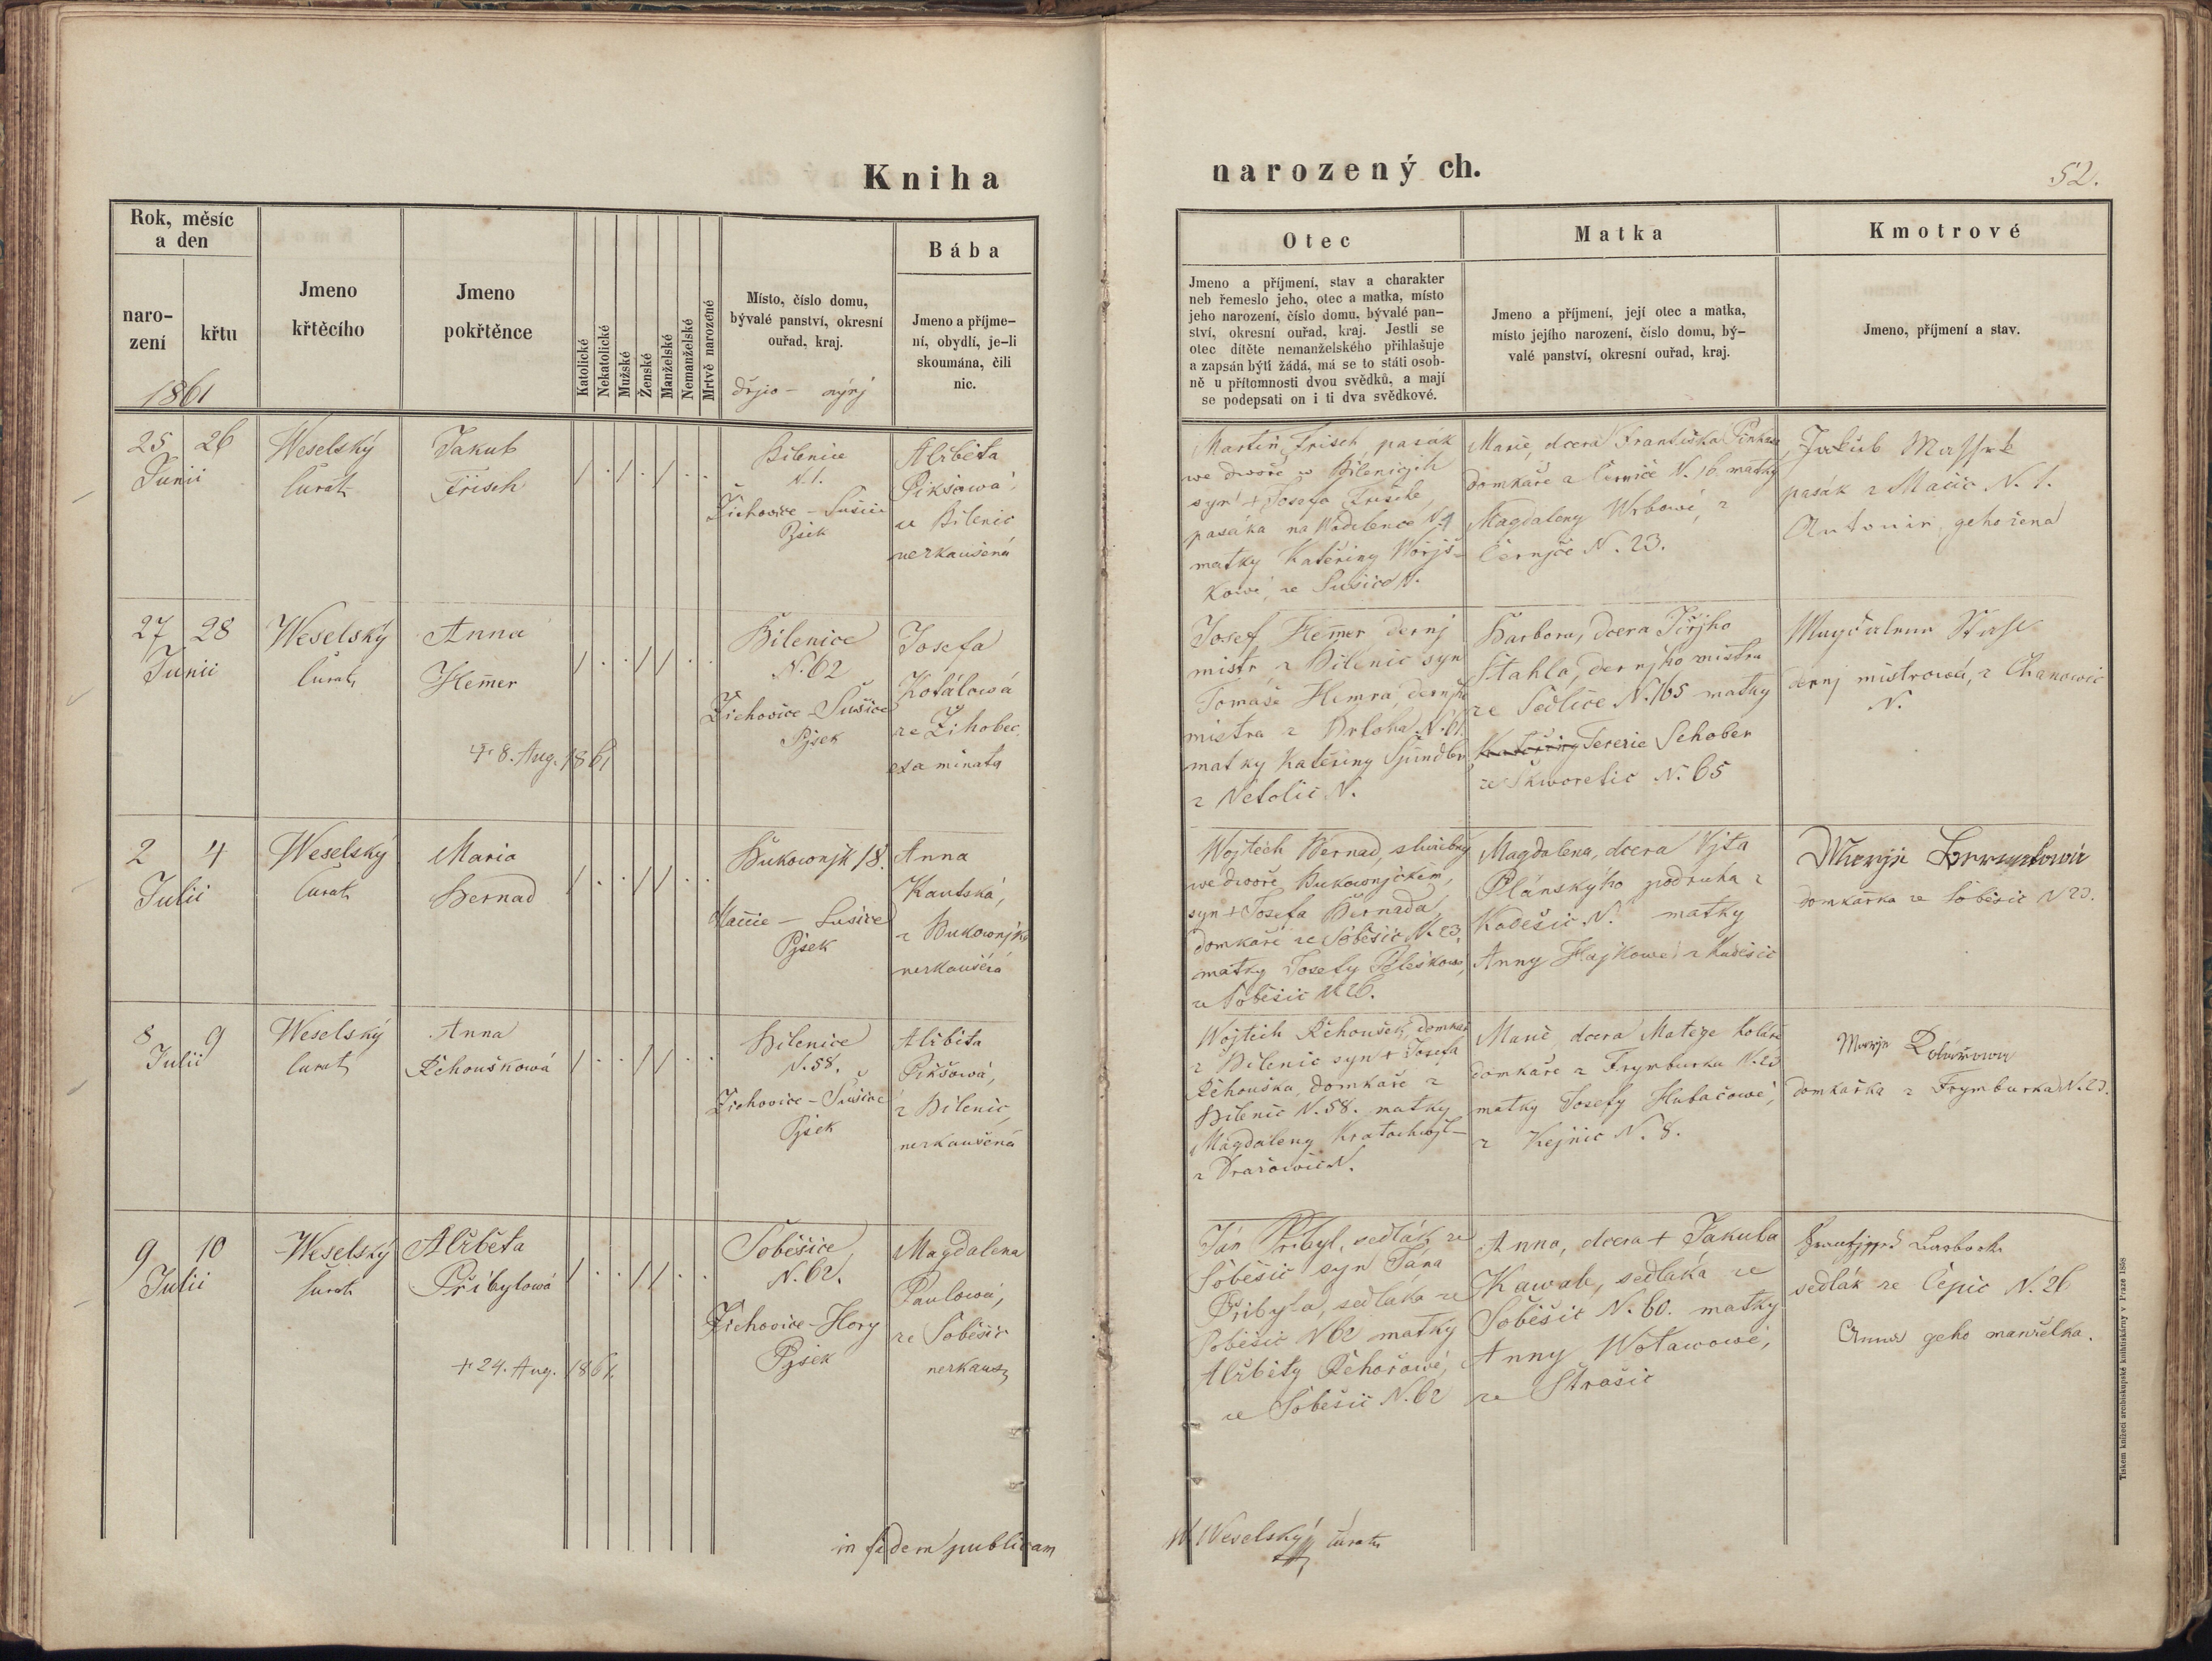 Kniha
narozený ch.
52.
Rok, měsíc
a den
naro-
zení
křtu
1861
Jmeno
křtěcího
Jmeno
pokřtěnce
Katolické
Nekatolické
Mužské
Ženské
Manželské
Nemanželské
Mrtvě narozené
Místo, číslo domu,
bývalé panství, okresní
ouřad, kraj.
Bába
Jmeno a příjme-
ní, obydlí, je-li
skoumána, čili
nic.
Otec
Jmeno a příjmení, stav a charakter
neb řemeslo jeho, otec a matka, místo
jeho narození, číslo domu, bývalé pan-
ství, okresní ouřad, kraj. Jestli se
otec dítěte nemanželského přihlašuje
a zapsán býti žádá, má se to státi osob-
ně u přítomnosti dvou svědků, a mají
se podepsati on i ti dva svědkové.
Matka
Jmeno a příjmení, její otec a matka,
místo jejího narození, číslo domu, bý-
valé panství, okresní ouřad, kraj.
Kmotrové
Jmeno, příjmení a stav.
25 26
Junii
Weselský
Curat
Jakub
Frisch
Bílenice
N. 1.
Žichovice - Sušice
Pjsek
Alžběta
Pikšowá,
z Bílenic
nezkaušená
Martin Frisch, pasák
we dwoře w Bílenicjch
syn + Josefa Frische,
pasáka na N. 1
matky Kateřiny
kowé, ze Sušice N.
Marie, dcera Františka
domkaře z Černice N. 16. matky
Magdaleny Wrbowé, z
Černjče N. 23.
Jakub
pasák z Mačic N. 1.
geho žena
27 28
Junii
Weselský
Curat
Anna
Hem̄er
+ 8. Aug. 1861
Bílenice
N. 62
Žichovice - Sušice
Pjsek
Josefa
Kotálowá
ze Žihobec
examinata
Josef Hem̄er dernj
mistr z Bílenic syn
Tomáše Hemra, dernjho
mistra z N. 61.
matky Kateřiny Špindler
z Netolic N.
Barbora, dcera Jiřjho
Stahla, dernjho mistra
ze Sedlice N. 165 matky
Kateřiny Terezie Schober
ze Škworetic N. 65
dernj mistrowá, z Chanowic
N.
2 4
Julii
Weselský
Curat
Maria
Bernad
Bukownjk 18.
Mačice - Sušice
Pjsek
Anna
Kautská,
z Bukownjka
nezkaušená
Wojtěch Bernad, služebný
we dwoře Bukownjckém,
syn + Josefa Bernada,
domkaře ze Soběšic N. 23.
matky Josefy
ze Soběšic N. 26.
Magdalena, dcera Vjta
Plánskýho podruha z
Kadešic N. matky
Anny Hajkowé z Kadešic
domkařka ze Soběšic N 23.
8 9
Julii
Weselský
Curat
Anna
Řehouškowá
Bílenice
N. 58.
Žichovice - Sušice
Pjsek
Alžběta
Pikšowá,
z Bílenic,
nezkaušená
Wojtěch Řehoušek, domkař
z Bílenic syn + Josefa
Řehouška, domkaře z
Bílenic N. 58. matky
Magdaleny Kratochwjl-
z Dražowic N.
Marie dcera Matěge Koláře
domkaře z Frymburka N. 23
matky Josefy Hubačowé,
z Kejnic N. 8.
Marye Kolářowa
domkařka z Frymburka N. 23.
9 10
Julii
Weselský
Curat
Alžběta
Přibylowá
+ 24. Aug. 1861.
Soběšice
N. 62.
Žichovice - Hory
Pjsek
Magdalena
Paulowá,
ze Soběšic
nezkauš
Ján Přibyl, sedlák ze
Soběšic syn Jána
Přibyla, sedláka ze
Soběšic N 62 matky
Alžběty Řehořowé,
ze Soběšic N. 62
Anna, dcera + Jakuba
Kawale, sedláka ze
Soběšic N. 60. matky
Anny Wotawowé,
ze Strašic
sedlák ze Čepic N. 26
Anna geho manželka.
in fidem publicam
W. Weselský curat
Tiskem knížecí arcibiskupské knihtiskárny v Praze 1858